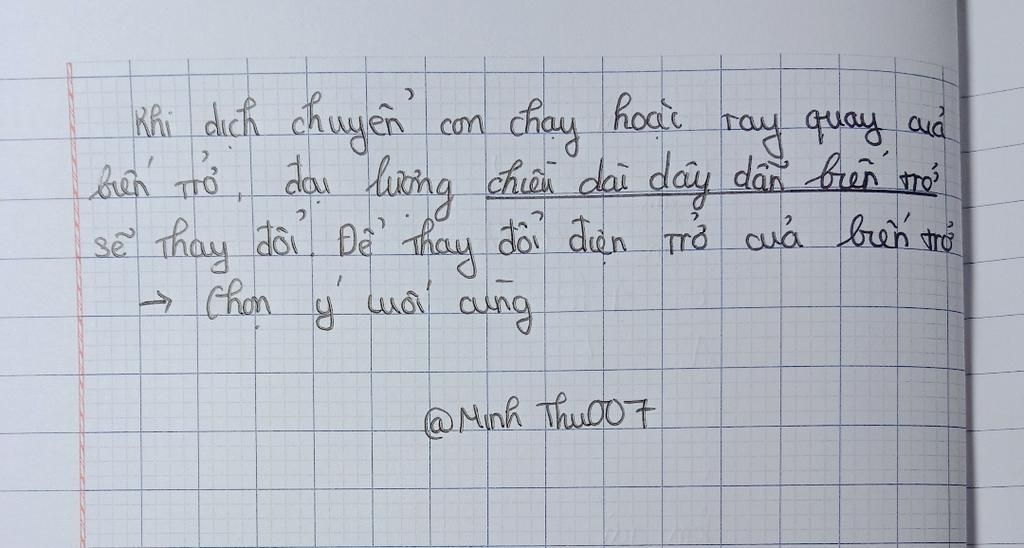 Khi dịch chuyển con chạy hoặc tay quay của
biến trở, đại lượng chiều dài dây dẫn biến trở
sẽ thay đổi. Để thay đổi điện trở của biến trở
→ Chọn ý cuối cùng
@Minh Thu007